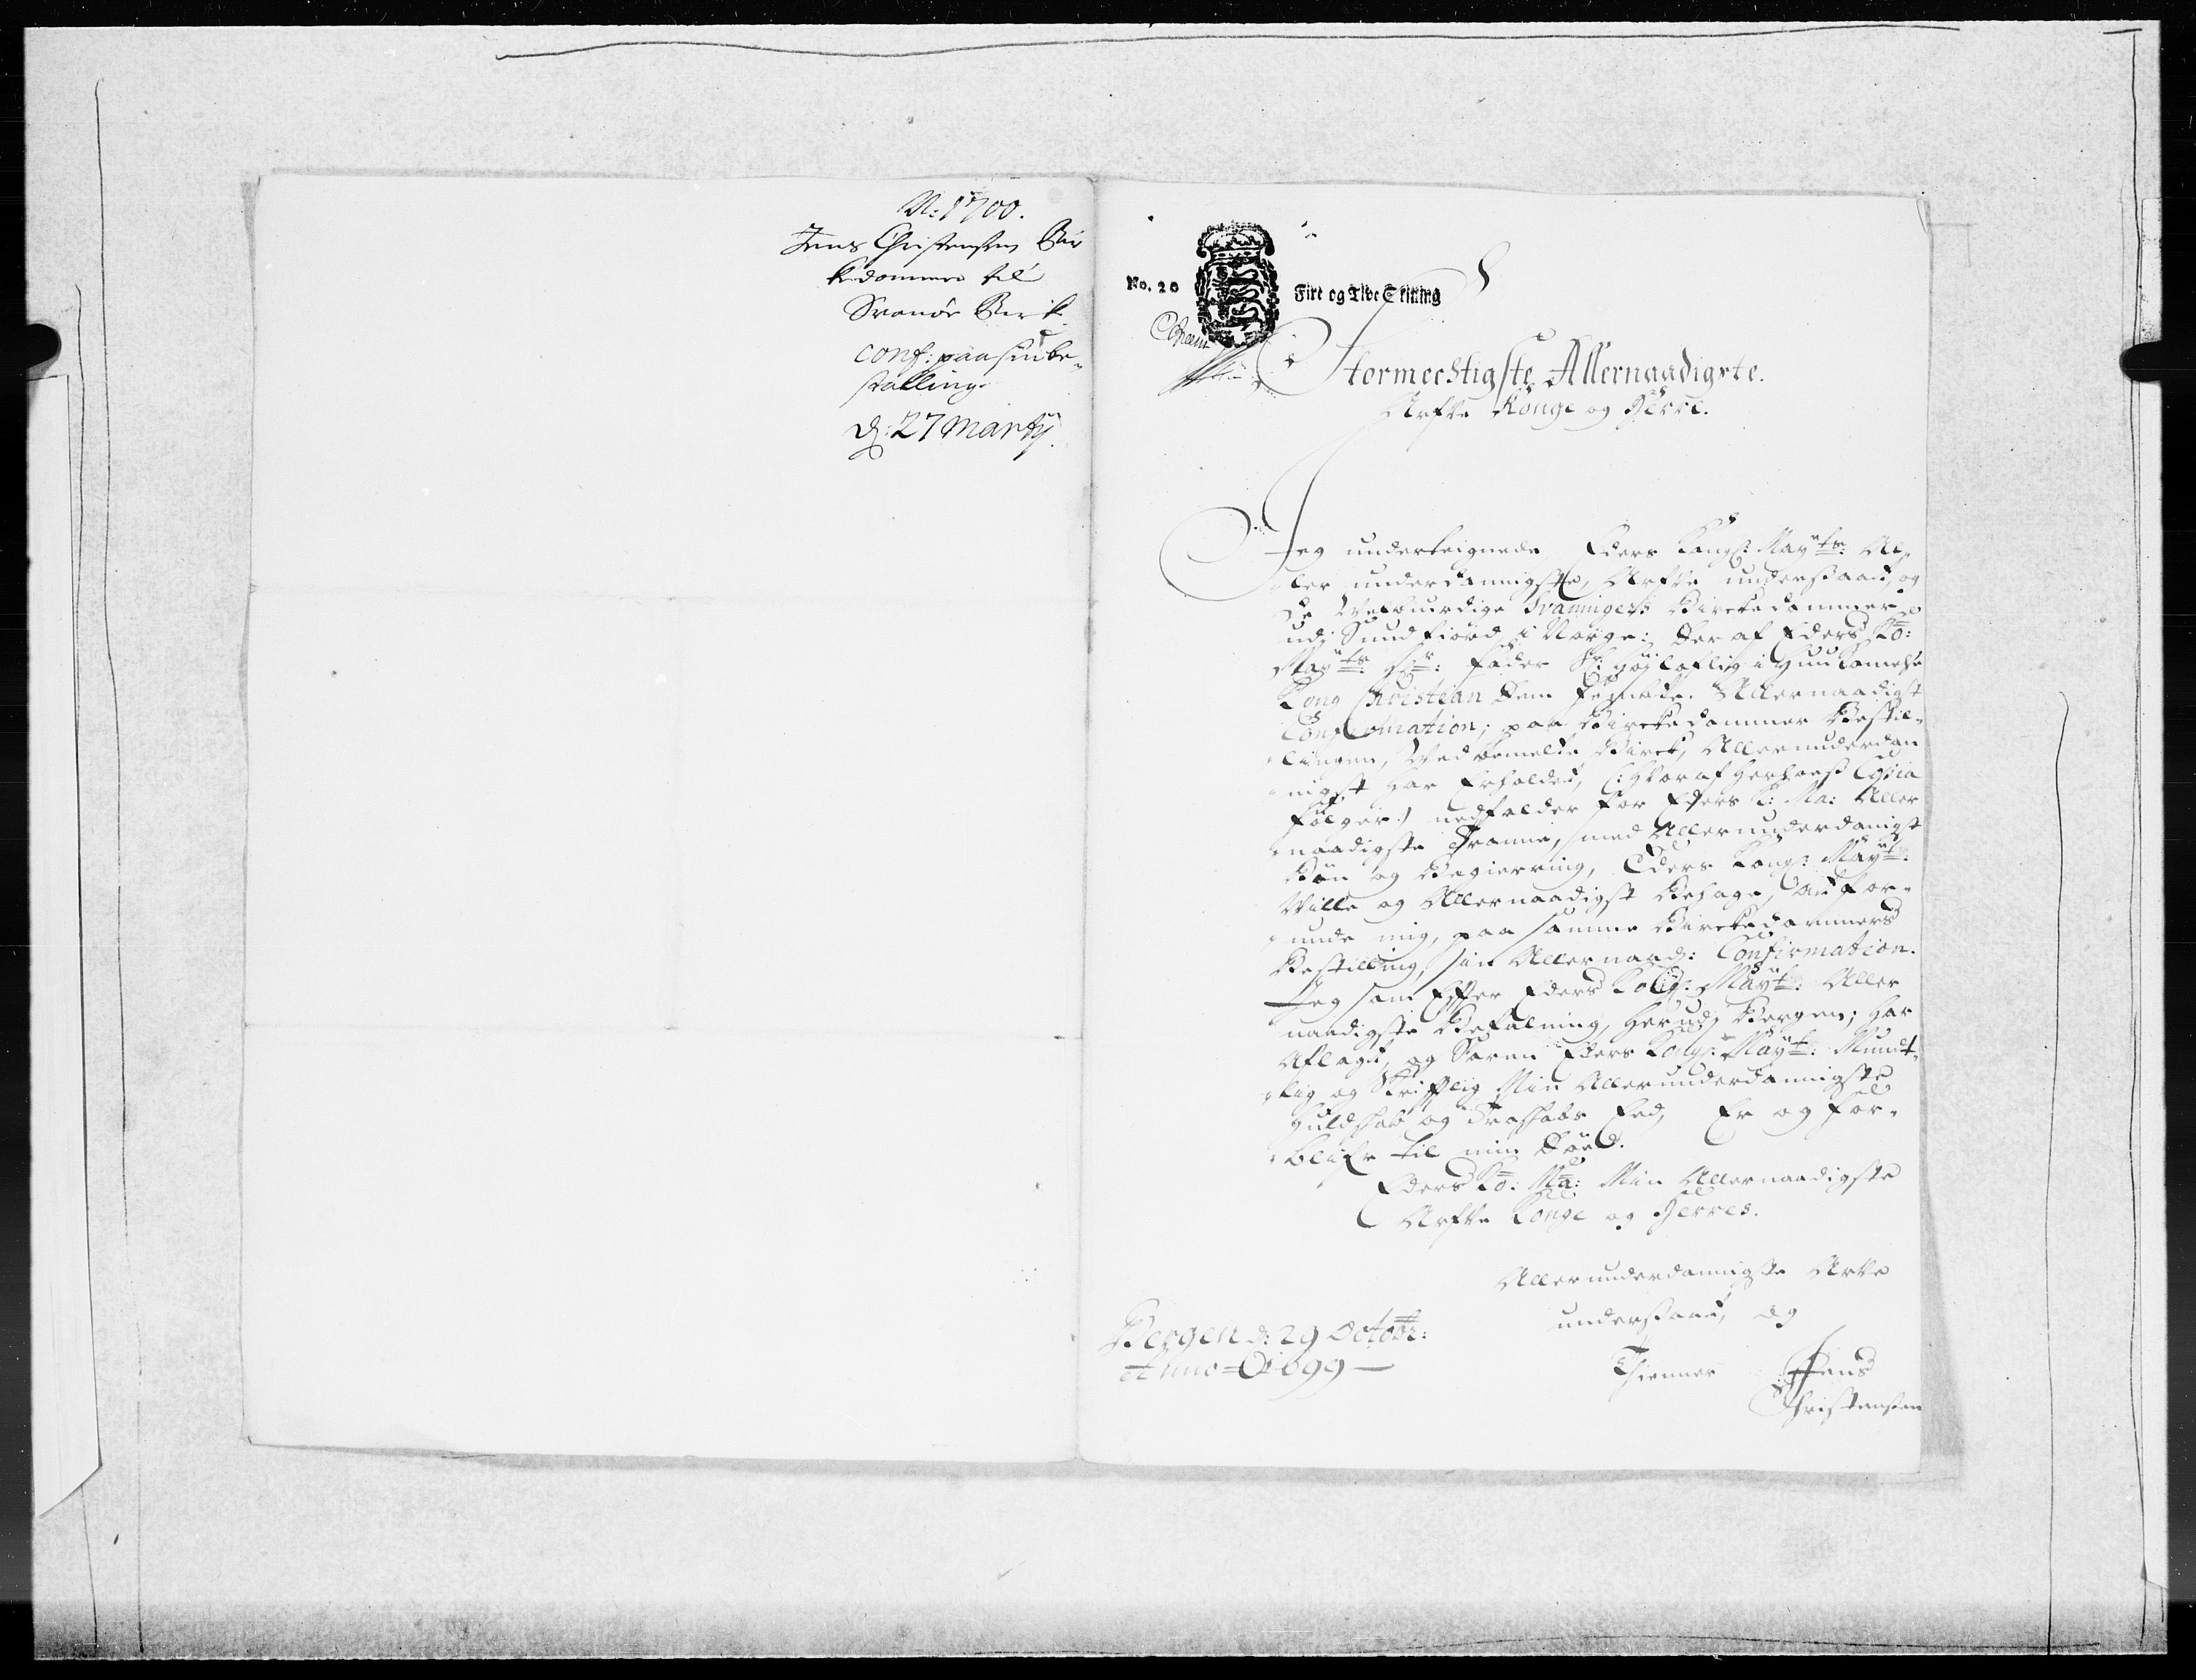 N: 1700.
Jens Christensen Bir
kedommer til
Svanöe Birk
conf: paa sin be-
stalling.
d: 27 Martÿ.
No. 20
Fire og Tive Skilling
Stormechtigste Allernaadigste.
Arfve Konge og Herre.
Jeg underteignede Eders Kongl: Mayts: Al-
ler underdannigste, Arfve undersaat, og
de Velbuurdige Svanniges Birckedommer
udj Sundfiord i Norge: Der af Eders Ko:
Mayts: Hr: Fader Sl: Höjloflig i Hukommelse
Kong Christian Dem Femte. Allernaadigst
Confirmation; paa Birckedommer Bestil-
lingen, Ved bemelte Birck, Allerunderdan
nigst har Erholdet, (: Hvoraf herhoes Copia
fölger:) nedfalder for Eders K: Ma: Aller
naadigste Tronne, med Allerunderdanigst
Bön og Begierring, Eders Kongl: Mayts:
Wille og Allernaadigst Behage, at for-
unde mig, paa samme Birckedommers
Bestilling, sin Allernaad: Confirmation.
Jeg som Efter Eders Kongl: Mayts: Aller
naadigste Befalning, herudj Bergen; har
Aflagt, og Soren Eders Kongl: Mayt: Mundt-
lig og Skriftlig Min Allerunderdannigste
Huldskab og Troskabs Eed, Er og for-
blifr til min Död.
Eders Ko: Ma: Min Allernaadigste
Arfve Konge og Herres.
Allerunderdannigste Arve
undersaat, og
Thienner Jens
Christensen
Bergen d: 29 Octobr:
Anno 1699